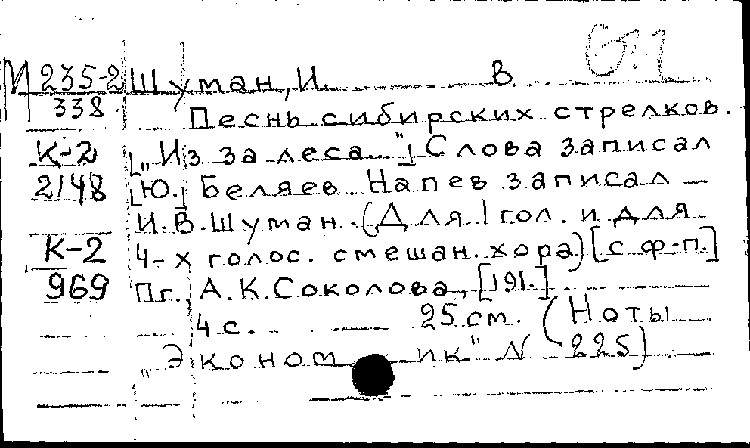 М 235-2 Шуман, И. В.
338 Песнь сибирских стрелков.
К-2 [„Из за леса..."] Слова записал
2148 [Ю.] Беляев Напев записал
И.В.Шуман. (Для 1 гол. и для
К-2 4-х голос. смешан. хора) [с ф-п.]
969 Пг., А.К.Соколова, [191.]
4 с. — 25 см. (Ноты
„Эконом — ик" N 225)